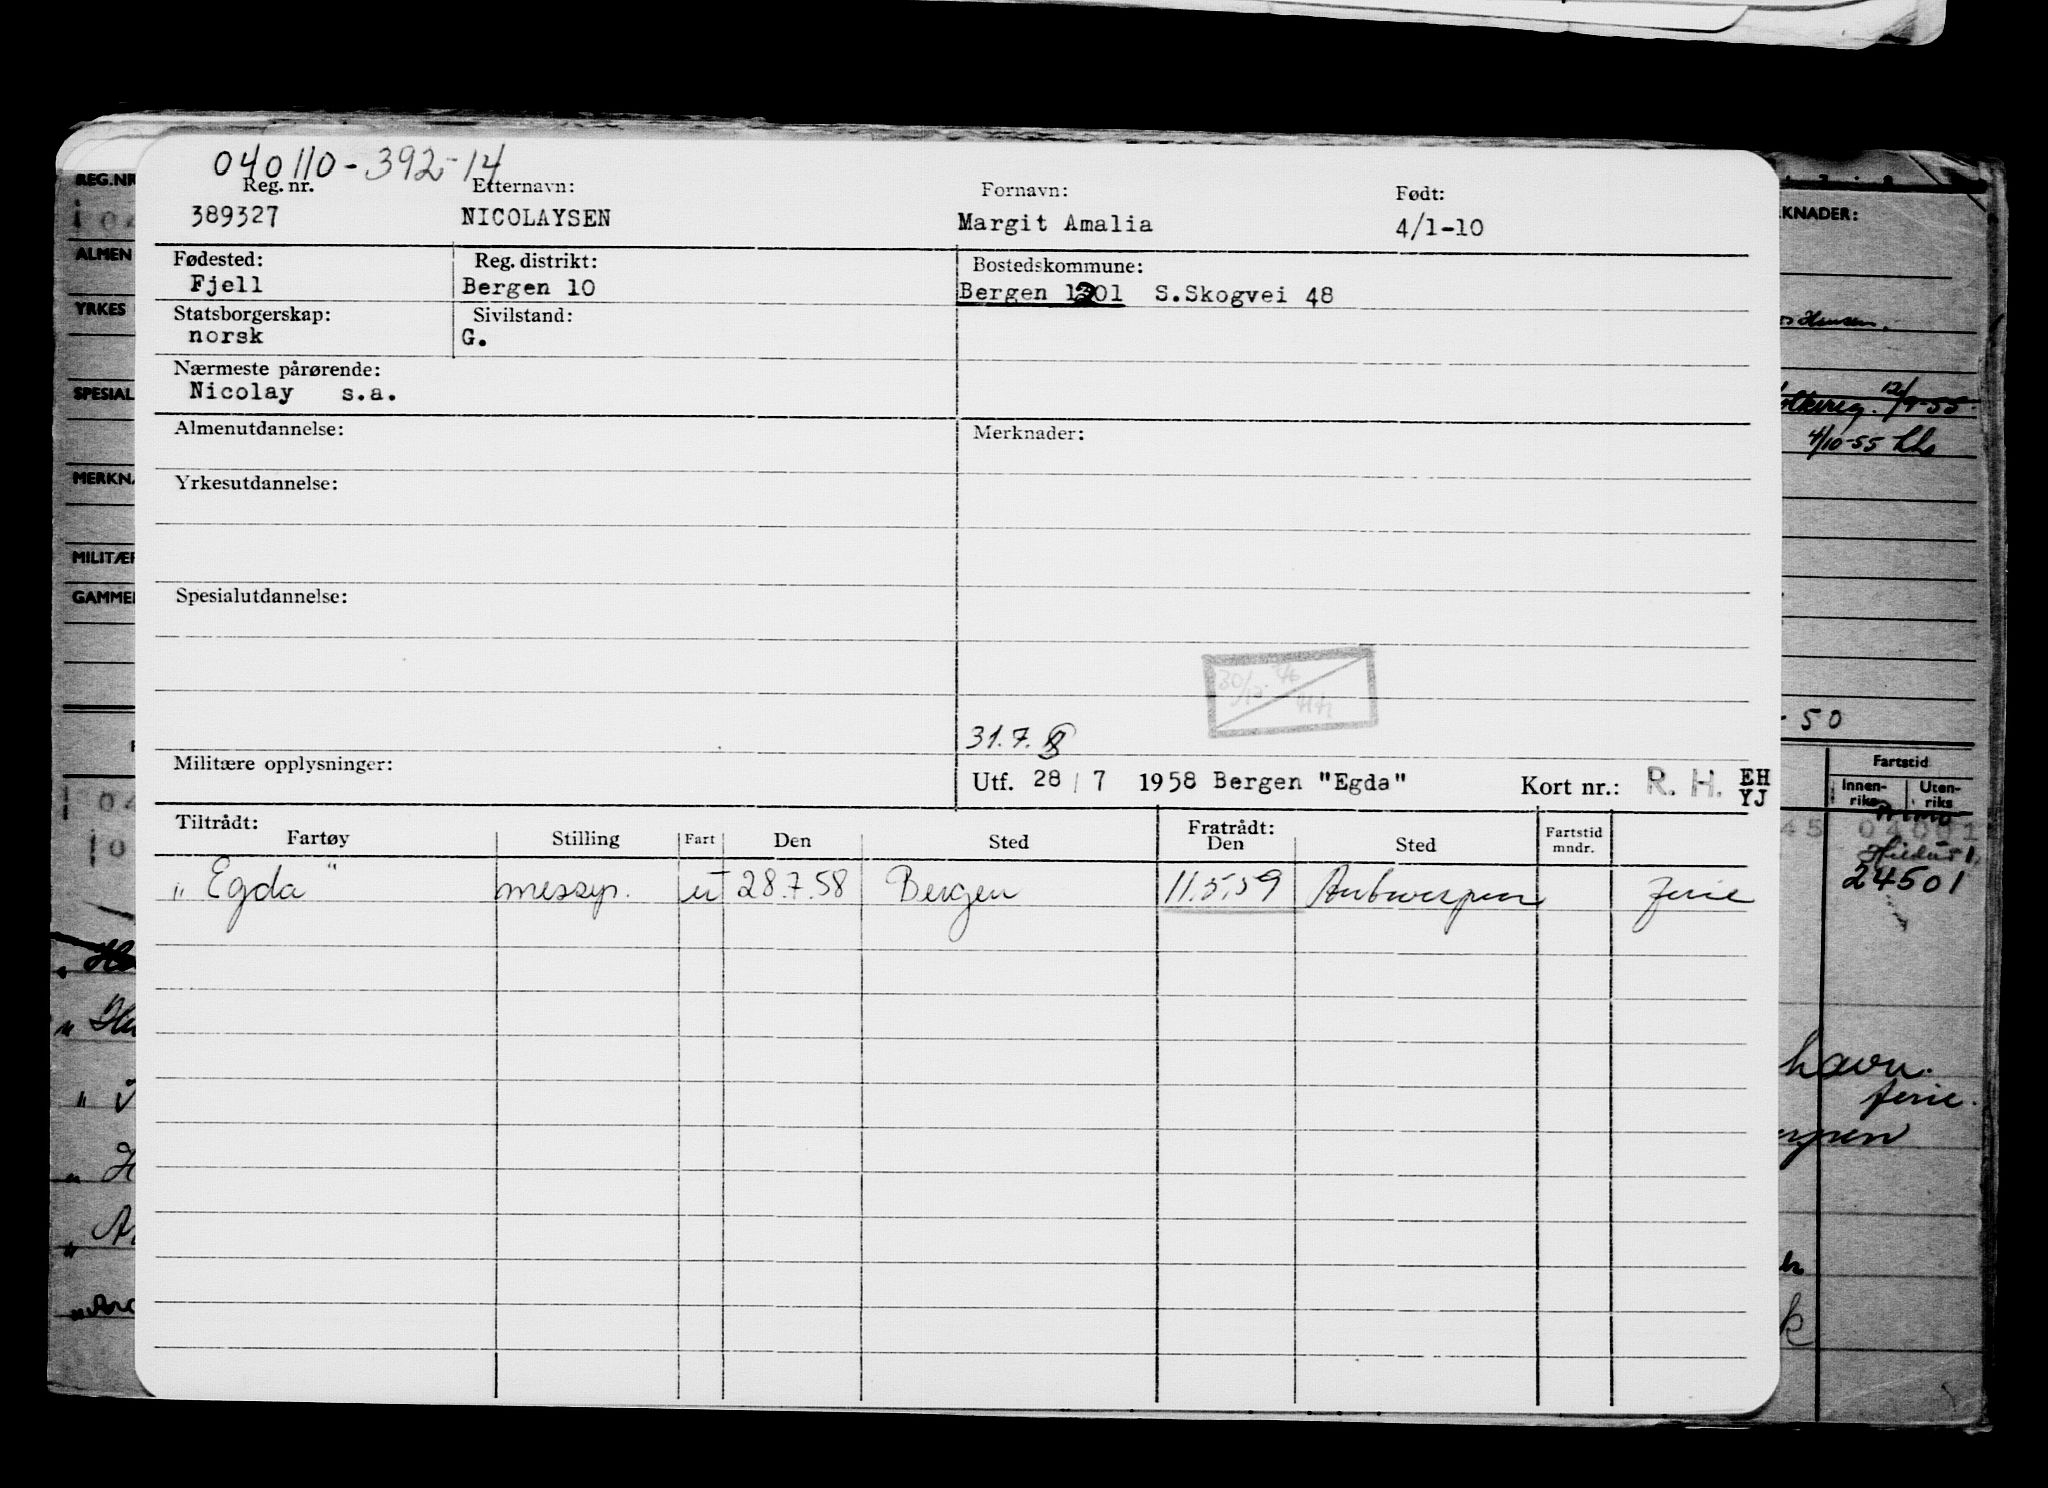 040110-392-14
Reg. nr. Etternavn: Fornavn: Født:
389327 NICOLAYSEN Margit Amalia 4/1-10
Fødested: Reg. distrikt: Bostedskommune:
Fjell Bergen 10 Bergen 1201 S.Skogvei 48
Statsborgerskap: Sivilstand:
norsk G.
Nærmeste pårørende:
Nicolay s.a.
Almenutdannelse: Merknader:
Yrkesutdannelse:
Spesialutdannelse:
31.7.
Militære opplysninger: Utf. 28 / 7 1958 Bergen "Egda" Kort nr.: R. H. EH
YJ
Tiltrådt: Fratrådt:
Fartøy Stilling Fart Den Sted Den Sted Fartstid mndr.
"Egda" messep. u 28.7.58 Bergen 11.5.59 Antwerpen ferie
REG.NR
ALMEN
YRKES
SPESIAL
MERKNA
MILITÆR
GAMMEL
KNADER:
Hansen.
12/9-55
4/10-55
-50
Fartstid
Innen-riks Uten-riks
45
24501
havn.
ferie.
rpen
k